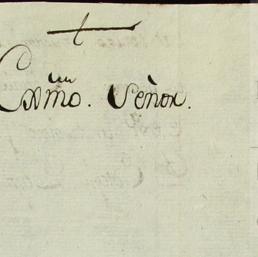 Exmo. Señor.